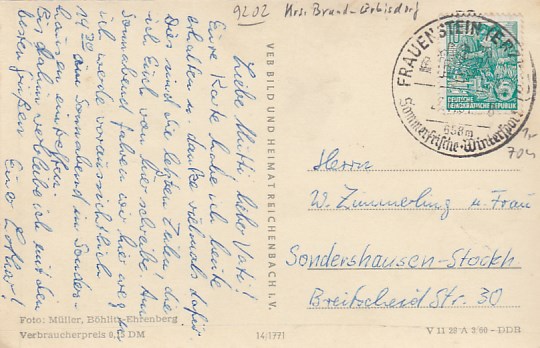 9202 Krs. Brand-Erbisdorf
Liebe Mutti, lieber Vati!
Eure Karte habe ich heute
erhalten u. danke vielmals dafür.
Dies sind die letzten Zeilen, die
ich Euch von hier schreibe. Am
Sonnabend fahren wir hier weg u.
ich werde voraussichtlich
14.30 am Sonnabend in Sonders-
hausen eintreffen.
Bis dahin verbleibe ich mit den
besten Grüßen
Euer Lothar!
Foto: Müller, Böhlitz-Ehrenberg
Verbraucherpreis 0,15 DM
14/1771
VEB BILD UND HEIMAT REICHENBACH I. V.
FRAUENSTEIN (ERZGEB)
658m
Sommerfrische · Wintersport
10
DEUTSCHE
DEMOKRATISCHE REPUBLIK
Herrn
W. Zimmerling u. Frau
Sondershausen-Stockh.
Breitscheid Str. 30
V 11 28 A 3 60 - DDR